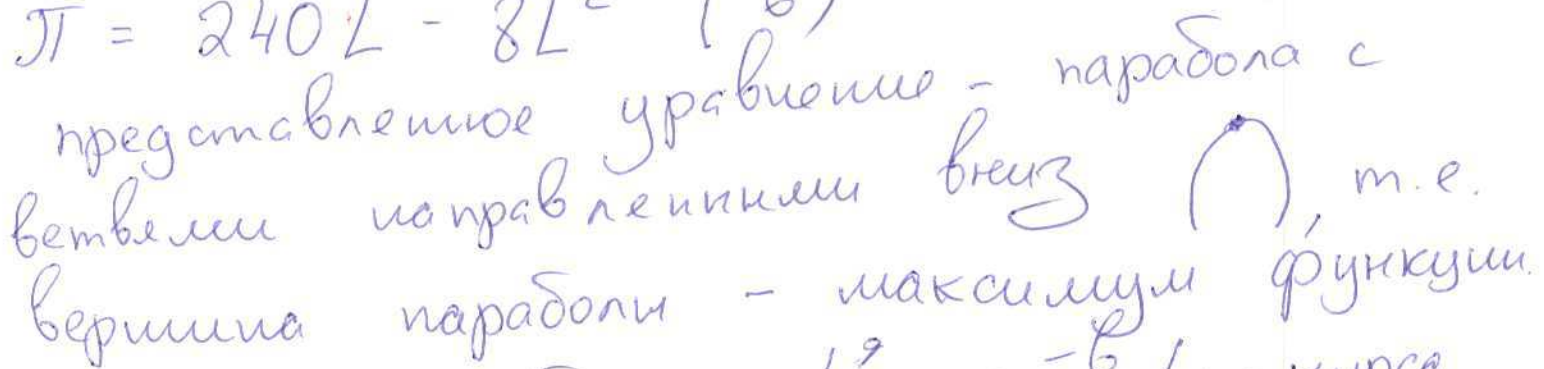 П = 240L - 8L²
представленное уравнение - парабола с
ветвями направленными вниз , т.е.
вершина параболы - максимум функции.